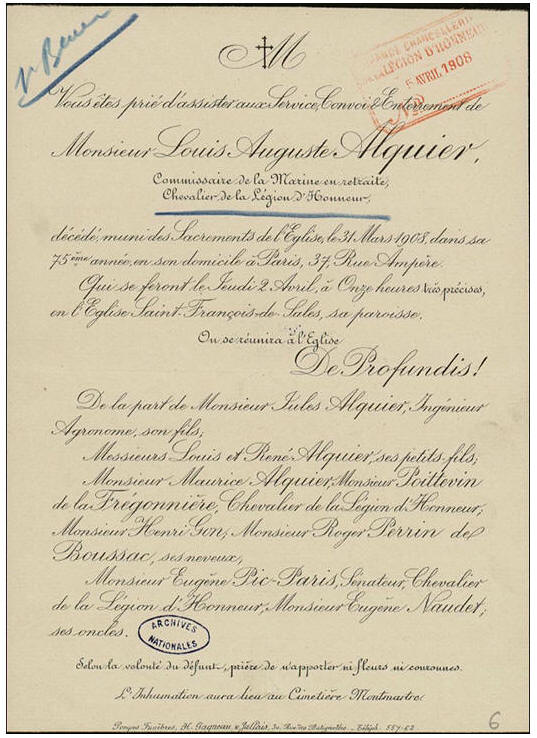 M
GRANDE CHANCELLERIE
DE LA LÉGION D'HONNEUR
5 AVRIL 1908
Vous êtes prié d'assister aux Service, Convoi & Enterrement de
Monsieur Louis Auguste Alquier,
Commissaire de la Marine en retraite,
Chevalier de la Légion d'Honneur,
décédé, muni des Sacrements de l'Eglise, le 31 Mars 1908, dans sa
75ème année, en son domicile à Paris, 37, Rue Ampère.
Qui se feront le Jeudi 2 Avril, à Onze heures très précises,
en l'Eglise Saint-François-de-Sales, sa paroisse.
On se réunira à l'Eglise
De Profundis!
De la part de Monsieur Jules Alquier, Ingénieur
Agronome, son fils;
Messieurs Louis et René Alquier, ses petits-fils;
Monsieur Maurice Alquier, Monsieur Poittevin
de la Frégonnière, Chevalier de la Légion d'Honneur;
Monsieur Henri Gon, Monsieur Roger Perrin de
Boussac, ses neveux;
Monsieur Eugène Pic-Paris, Sénateur, Chevalier
de la Légion d'Honneur, Monsieur Eugène Naudet;
ses oncles.
ARCHIVES
NATIONALES
Selon la volonté du défunt, prière de n'apporter ni fleurs ni couronnes.
L'Inhumation aura lieu au Cimetière Montmartre
Pompes Funèbres, H. Gagneau & Jallais, 30, Rue des Batignolles - Téléph. 557-62
6